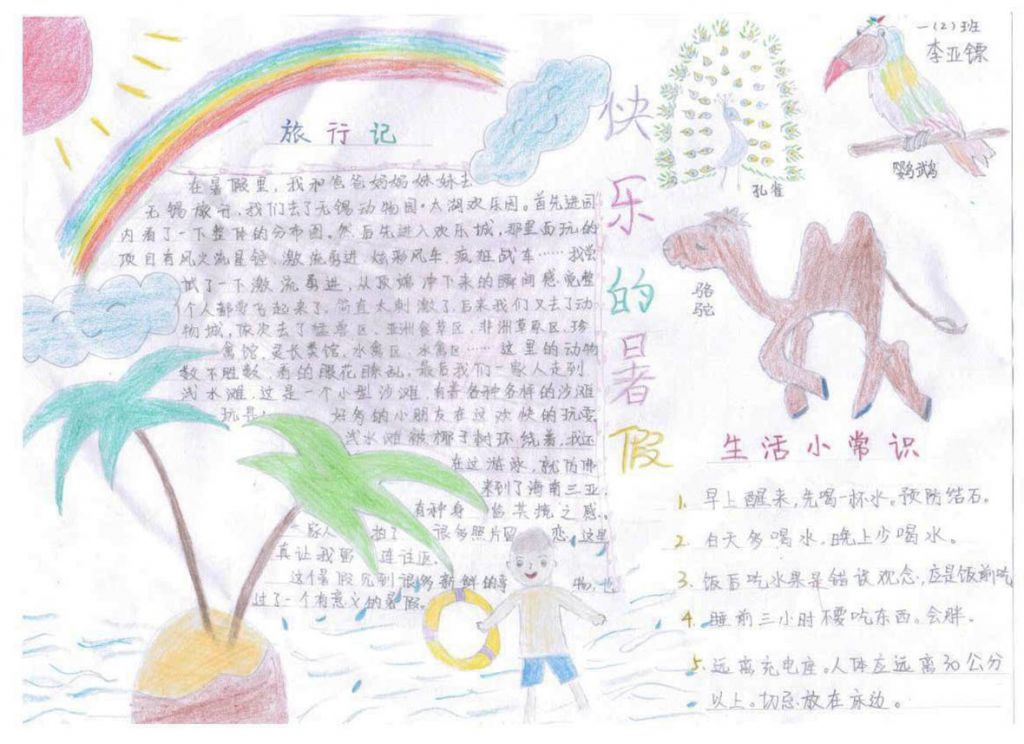 一（2）班
李亚镖
旅行记
在暑假里，我和爸爸妈妈妹妹去
无锡旅行，我们去了无锡动物园·太湖欢乐园。首先进园
内看了一下整体的分布图。然后先进入欢乐城，那里面玩的
项目有风火流星锤、激流勇进、炫彩风车、疯狂战车……我尝
试了一下激流勇进，从顶端冲下来的瞬间感觉整
个人都要飞起来了，简直太刺激了。后来我们又去了动
物城，依次去了猛兽区、亚洲食草区、非洲草原区、珍
禽馆、灵长类馆、水禽区、冰禽区……这里的动物
数不胜数，看的眼花瞭乱。最后我们一家人走到
浅水滩，这是一个小型沙滩，有着各种各样的沙滩
玩具！好多的小朋友在这欢快的玩耍
浅水滩被椰子树环绕着，我还
在这游泳，就仿佛
来到了海南三亚，
有种身临其境之感。
家人拍了很多照片留恋，这里
真让我留连往返。
这个暑假见到很多新鲜的事物，也
过了一个有意义的暑假。
快乐的暑假
孔雀
鹦鹉
骆驼
生活小常识
1. 早上醒来，先喝一杯水。预防结石。
2. 白天多喝水，晚上少喝水。
3. 饭后吃水果是错误观念，应是饭前吃
4. 睡前三小时不要吃东西。会胖。
5. 远离充电座。人体应远离30公分
以上。切忌放在床边。